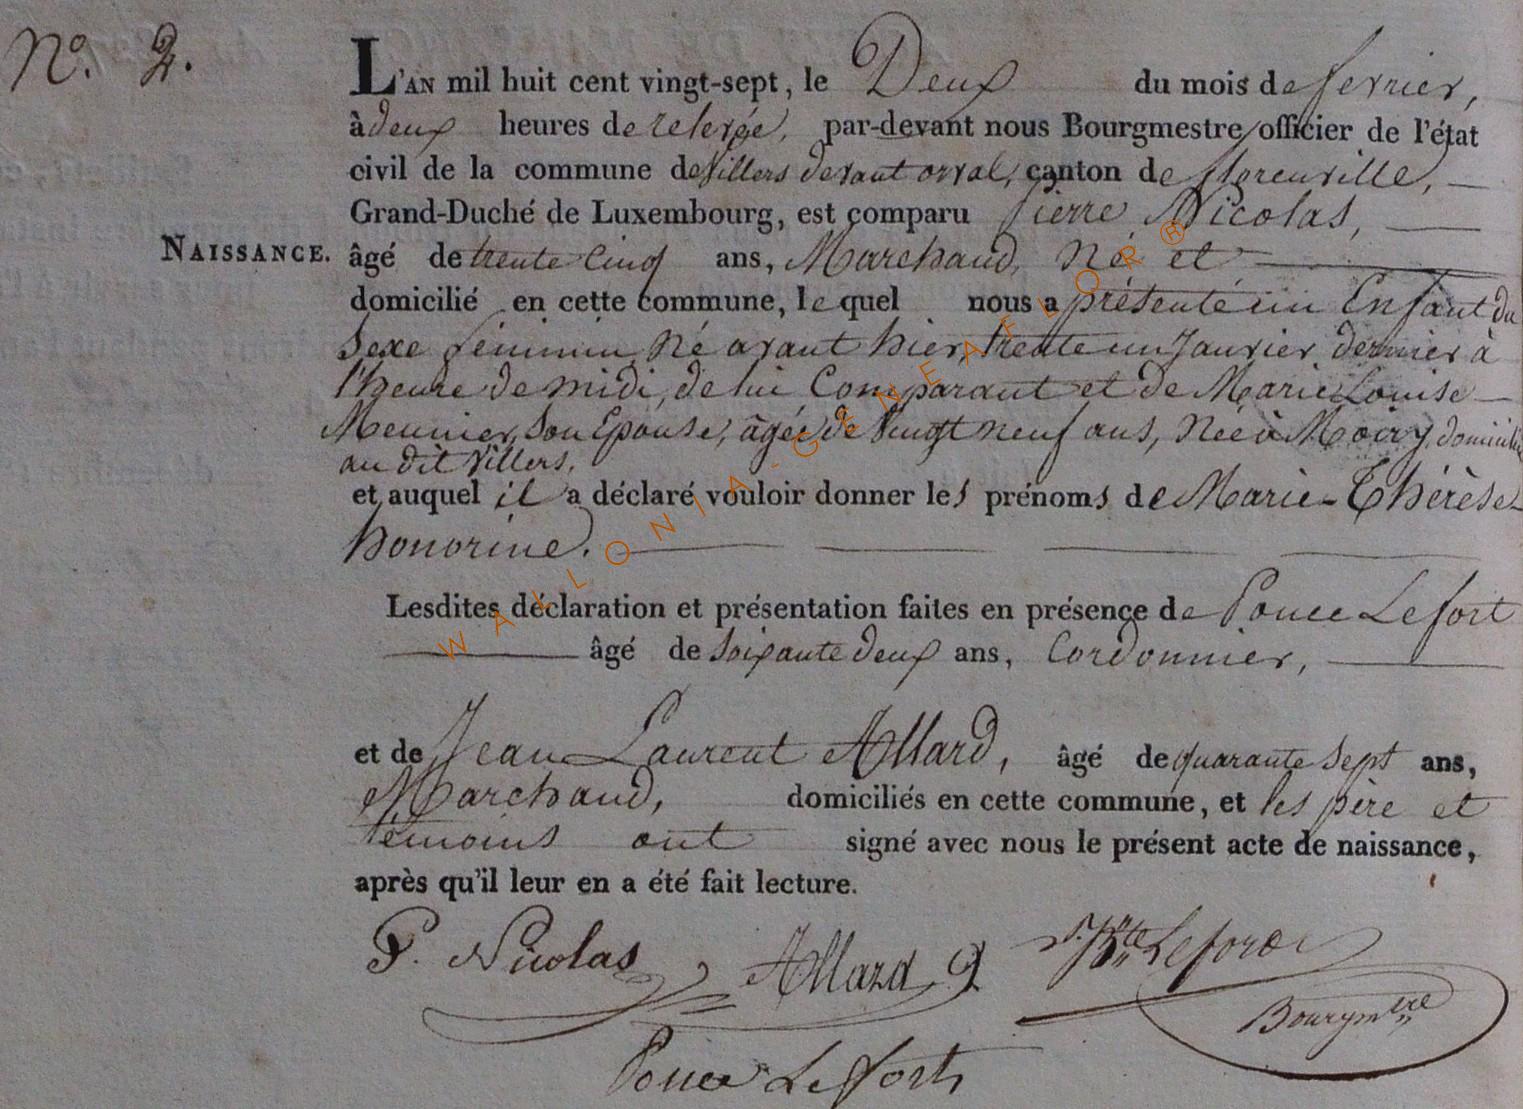 N.º 2.
L'AN mil huit cent vingt-sept, le Deux du mois de fevrier,
à deux heures de relevée, par-devant nous Bourgmestre officier de l'état
civil de la commune de Villers devant orval, canton de florenville,
Grand-Duché de Luxembourg, est comparu Pierre Nicolas,
NAISSANCE. âgé de trente Cinq ans, Marchand, Né et
domicilié en cette commune, lequel nous a présenté un Enfant du
Sexe féminin, Né avant hier, trente un Janvier dernier à
l'heure de midi, de lui Comparant et de Marie Louise
Meunier, Son Epouse, âgée de Vingt neuf ans, Née à Moiry, domiciliée
au dit Villers,
et auquel il a déclaré vouloir donner les prénoms de Marie-Thérèse-
honorine.
Lesdites déclaration et présentation faites en présence de Ponce Lefort
âgé de soixante deux ans, Cordonnier,
et de Jean Laurent Allard, âgé de quarante Sept ans,
Marchand, domiciliés en cette commune, et les père et
témoins ont signé avec nous le présent acte de naissance,
après qu'il leur en a été fait lecture.
P. Nicolas Allard J. Bte Lefort
Bourgmtre
Ponce Lefort
WALLONIA-GENEAFLOR®